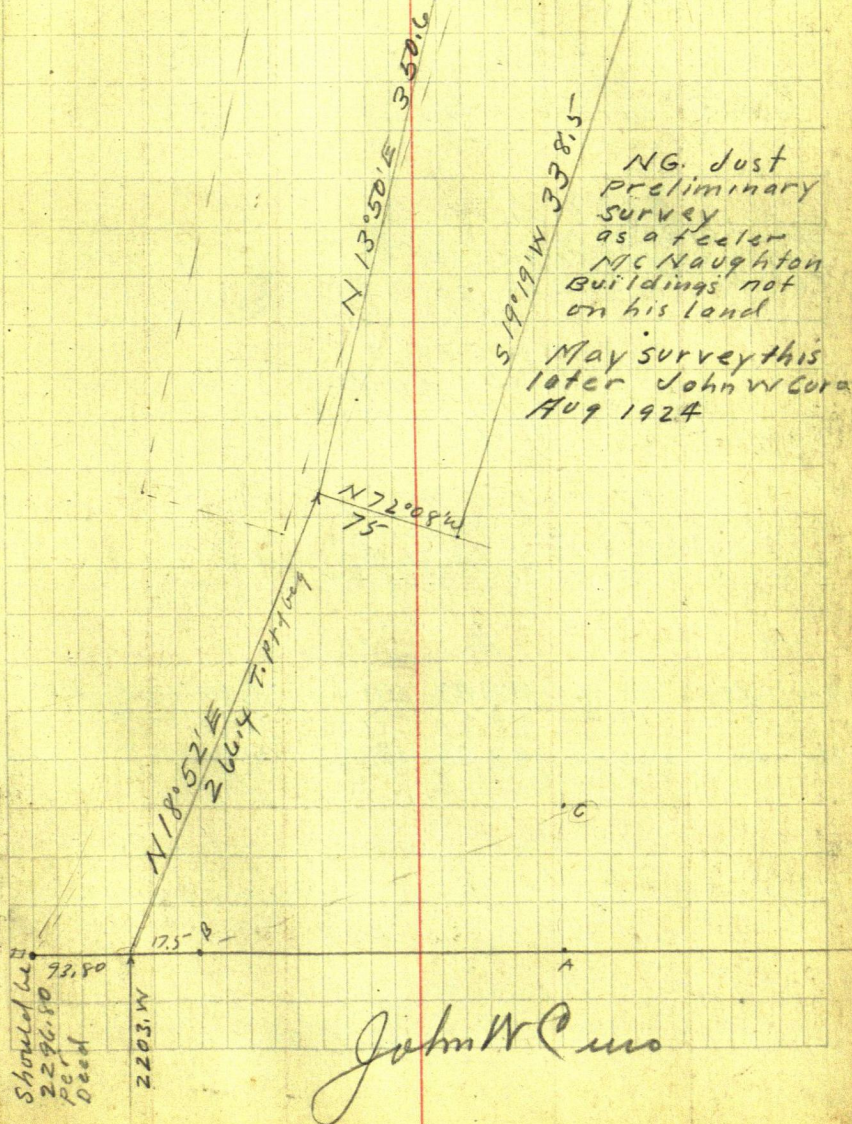 N 13°50' E 350.6
S 19°19' W 338.5
NG. Just
Preliminary
survey
as a feeler
McNaughton
Buildings not
on his land
May survey this
later John W Curo
Aug 1924
N 72°08' W
75
N 18°52' E
266.4 T.
C
17.5 B
93.80
A
Should be
2296.80
Per
Deed
2203. W
John W Curo